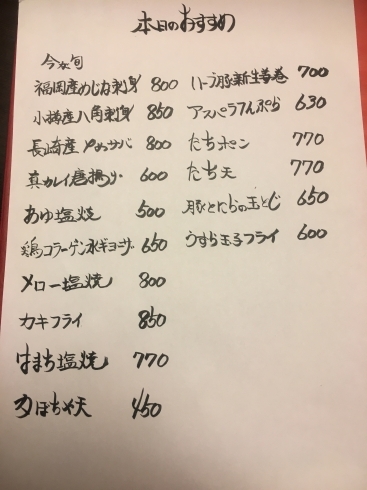 本日のおすすめ
今が旬
福岡産めじな刺身 800
小樽産八角刺身 850
長崎産〆サバ 800
真カレイ唐揚げ 600
あゆ塩焼 500
鶏コラーゲン水ギョーザ 650
メロー塩焼 800
カキフライ 850
はまち塩焼 770
かぼちゃ天 450
ハーブ豚新生姜巻 700
アスパラ天ぷら 630
たちポン 770
たち天 770
豚とにらの玉とじ 650
うずら玉子フライ 600